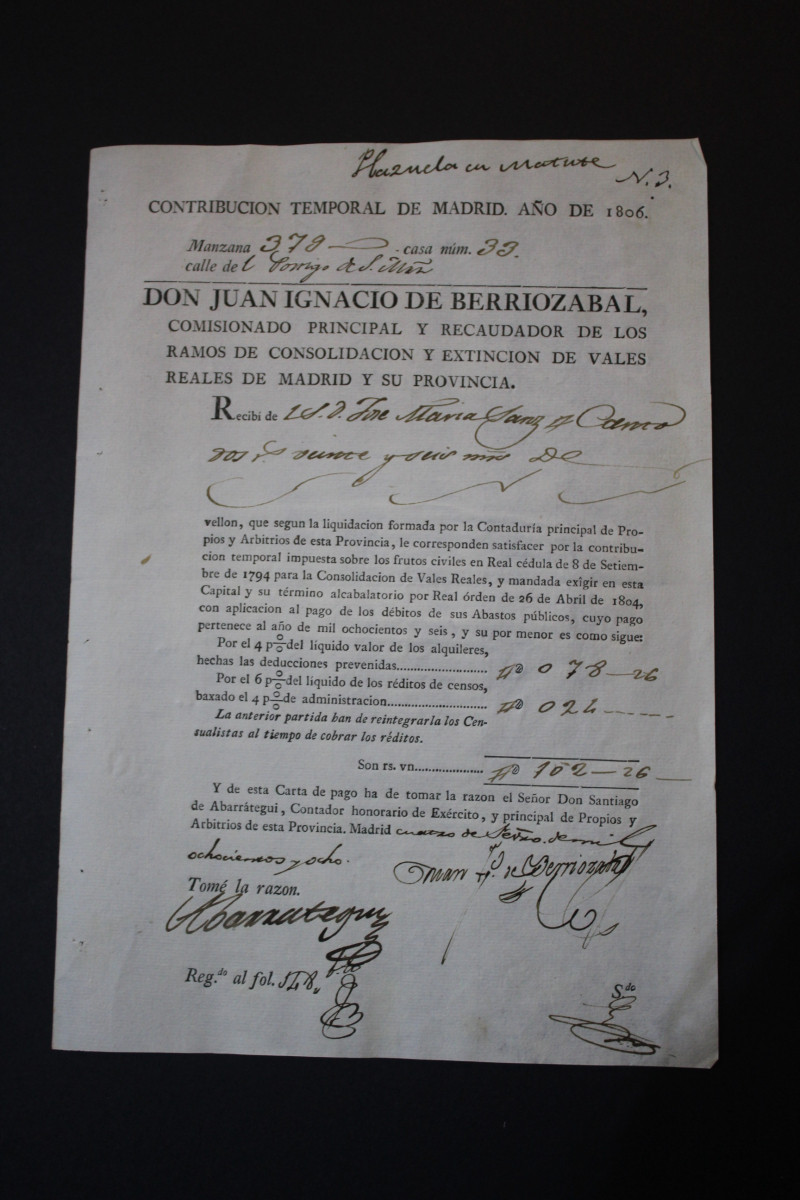 Plazuela en Matute
N. 3.
CONTRIBUCION TEMPORAL DE MADRID. AÑO DE 1806.
Manzana 379 casa núm. 33.
calle del Postigo de S. Mñ
DON JUAN IGNACIO DE BERRIOZABAL,
COMISIONADO PRINCIPAL Y RECAUDADOR DE LOS
RAMOS DE CONSOLIDACION Y EXTINCION DE VALES
REALES DE MADRID Y SU PROVINCIA.
Recibi de l S. D. Jose Maria Sanz
dos rs veinte y seis mrs De
vellon, que segun la liquidacion formada por la Contaduría principal de Pro-
pios y Arbitrios de esta Provincia, le corresponden satisfacer por la contribu-
cion temporal impuesta sobre los frutos civiles en Real cédula de 8 de Setiem-
bre de 1794 para la Consolidacion de Vales Reales, y mandada exigir en esta
Capital y su término alcabalatorio por Real órden de 26 de Abril de 1804,
con aplicacion al pago de los débitos de sus Abastos públicos, cuyo pago
pertenece al año de mil ochocientos y seis, y su por menor es como sigue:
Por el 4 p% del líquido valor de los alquileres,
hechas las deducciones prevenidas......................... 078-26
Por el 6 p% del líquido de los réditos de censos,
baxado el 4 p% de administracion............................ 024
La anterior partida han de reintegrarla los Cen-
sualistas al tiempo de cobrar los réditos.
Son rs. vn.................... 102-26
Y de esta Carta de pago ha de tomar la razon el Señor Don Santiago
de Abarrátegui, Contador honorario de Exército, y principal de Propios y
Arbitrios de esta Provincia. Madrid cuatro de de mil
ochocientos y ocho.
Juan Y. de Berriozabal
Tomé la razon.
Abarrategui
Reg.do al fol. 148
S.do